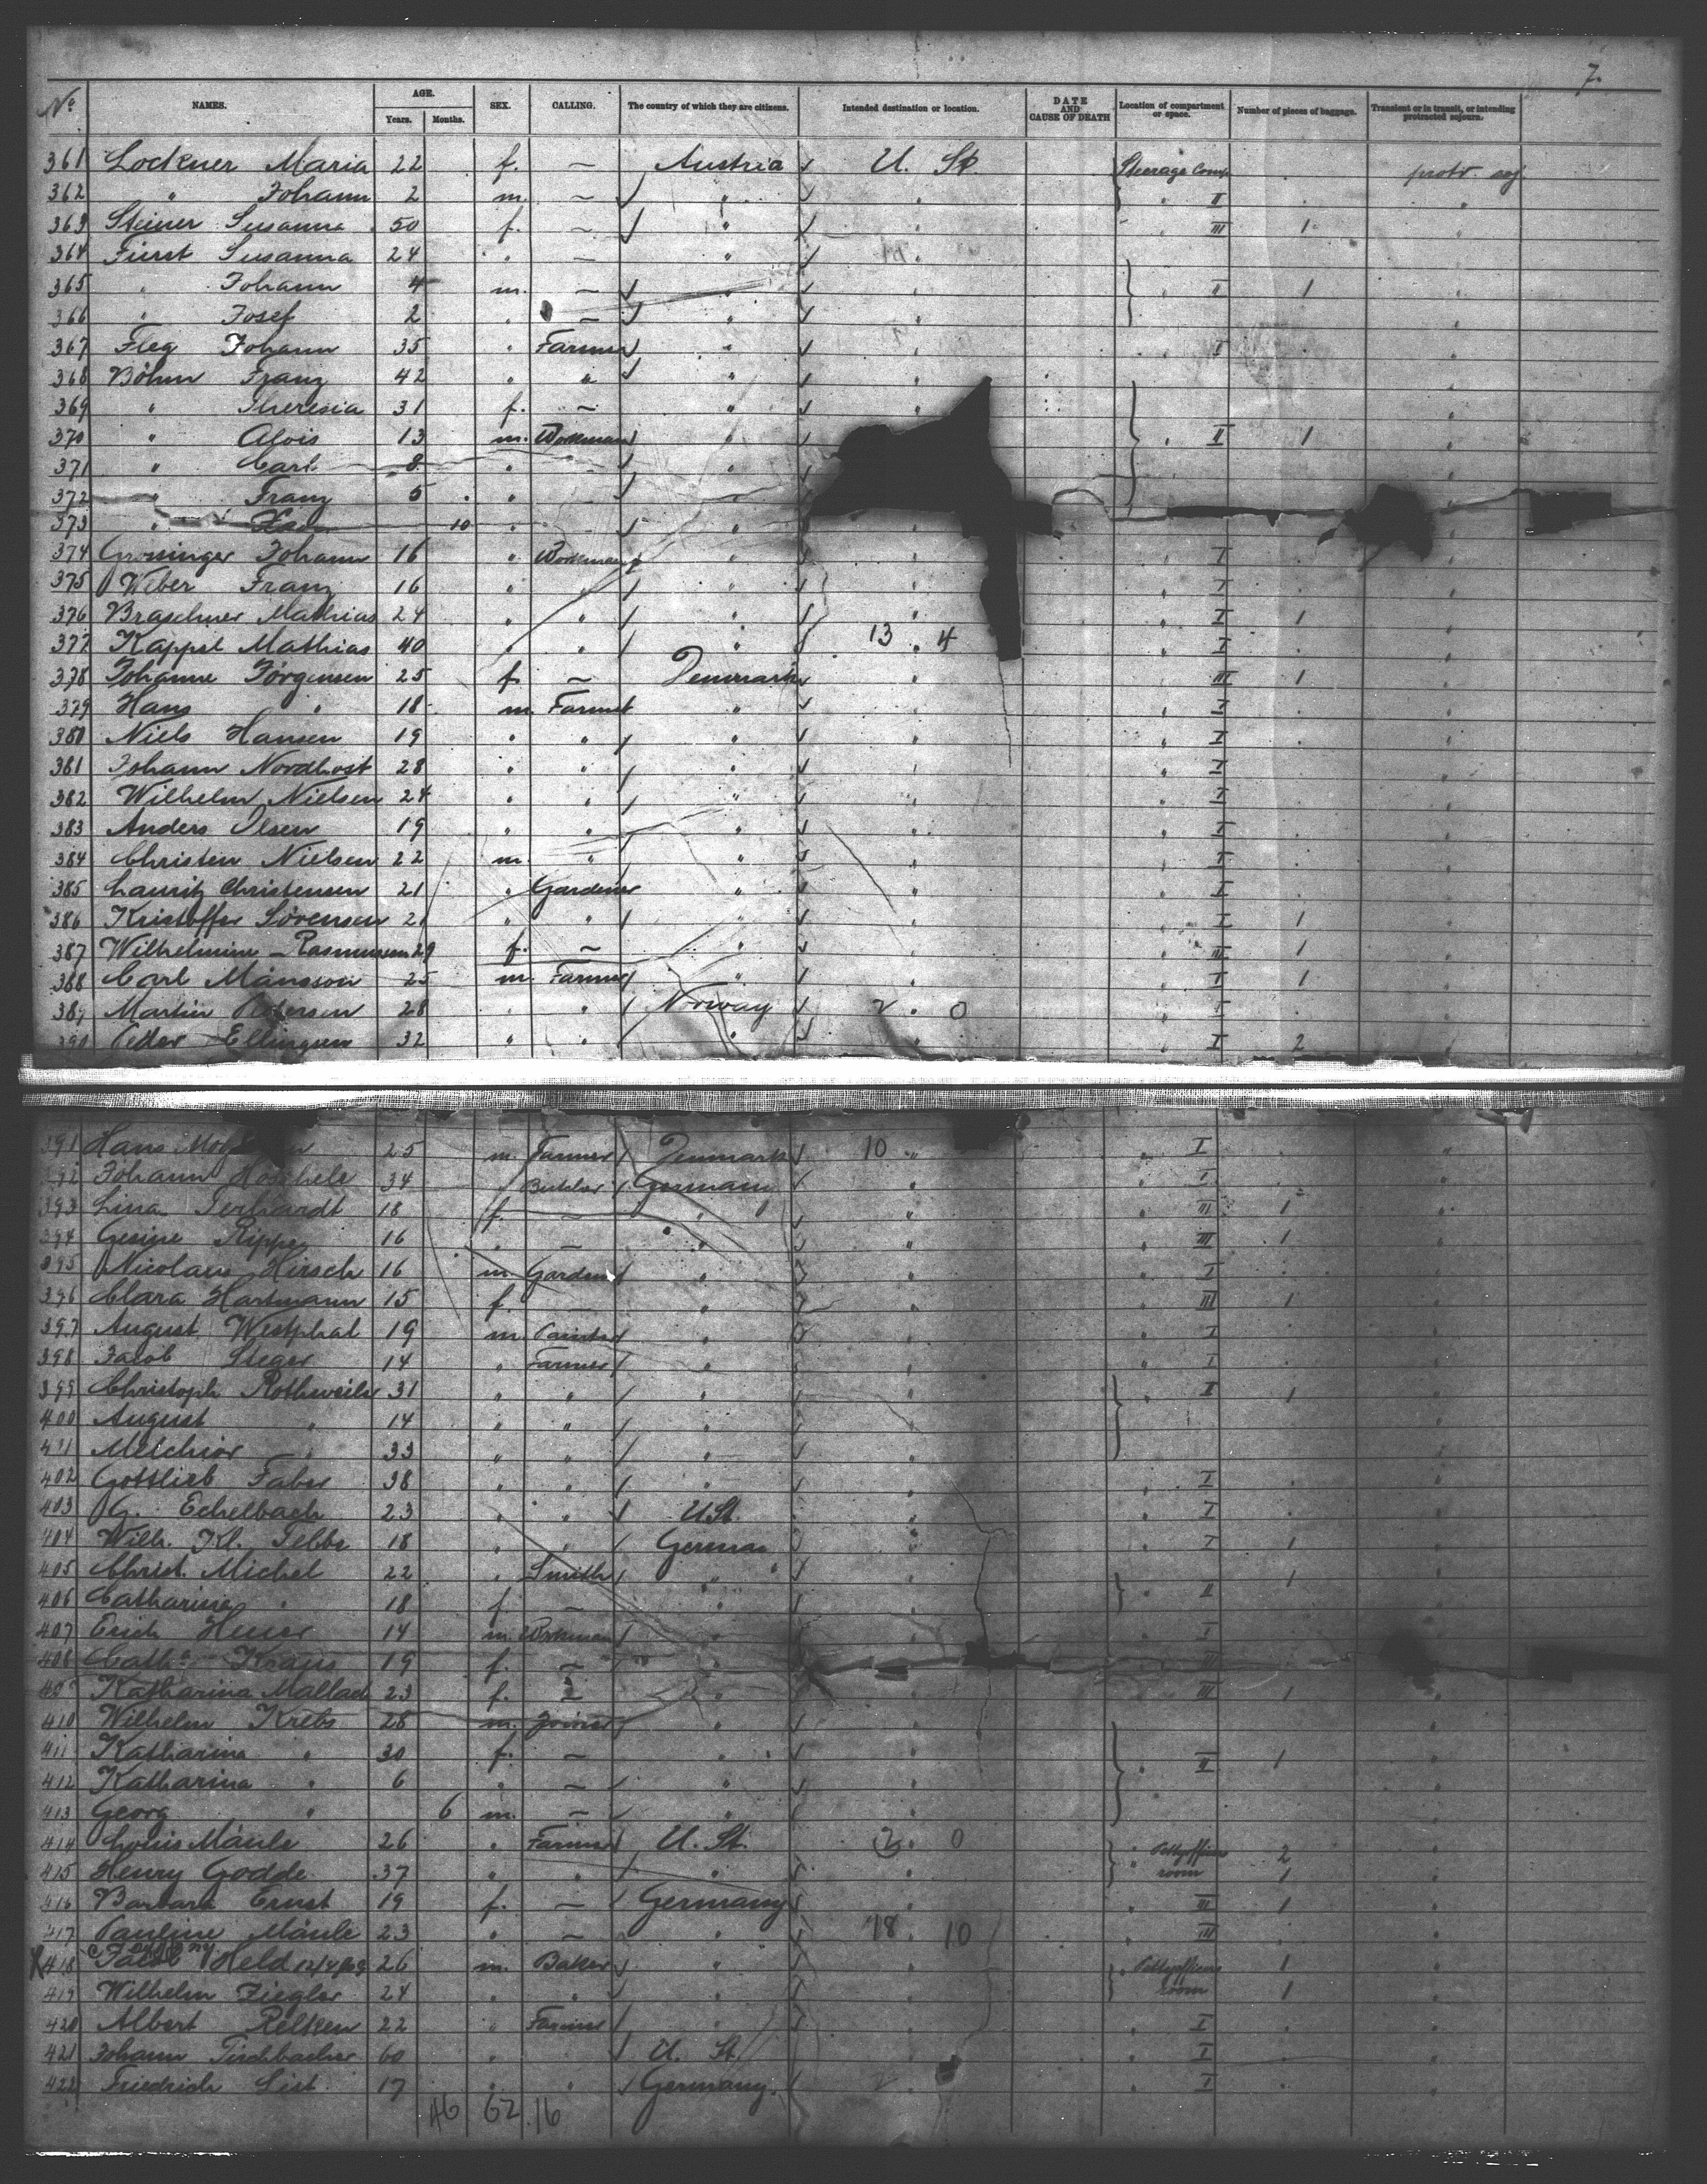 7.
No. NAMES. AGE. Years. Months. SEX. CALLING. The country of which they are citizens. Intended destination or location. DATE AND CAUSE OF DEATH Location of compartment or space. Number of pieces of baggage. Transient or in transit, or intending protracted sojourn.
361 Lockner Maria 22 f. — Austria U. St. Steerage Comp. protr. soj.
362 " Johann 2 m. — " " " II "
363 Steiner Susanna 50 f. — " " " III 1 "
364 Fürst Susanna 24 " — " "
365 " Johann 4 m. — " " " II 1 "
366 " Josef 2 " — " " "
367 Fleg Johann 35 " Farmer " " " I "
368 Böhm Franz 42 " " " " "
369 " Theresia 31 f. — " " "
370 " Alois 13 m. Workman " " II 1 "
371 " Carl 8 " — " "
372 " Franz 5 " — " "
373 " 10 " — "
374 Groninger Johann 16 " Workman " " " I "
375 Weber Franz 16 " " " " I "
376 Braschner Mathias 24 " " " " I 1 "
377 Kappel Mathias 40 " " " 13 " 4 " I "
378 Johanne Jörgensen 25 f. — Denmark " " III 1 "
379 Hans " 18 m. Farmer " " " I "
380 Niels Hansen 19 " " " " " I "
381 Johann Nordhost 28 " " " " " I "
382 Wilhelm Nielsen 24 " " " " " I "
383 Anders Olsen 19 " " " " " I "
384 Christen Nielsen 22 m. " " " " I "
385 Lauritz Christensen 21 " Gardener " " " I "
386 Kristoffer Sörensen 21 " " " " " I 1 "
387 Wilhelmine - Rasmussen 29 f. — " " " III 1 "
388 Carl Mánsson 25 m. Farmer " " " I 1 "
389 Martin Petersen 28 " " Norway 2 " 0 " I "
390 Peder Ellingsen 32 " " " " " I 2 "
391 Hans 25 m. Farmer Denmark 10 " " I "
392 Johann 34 " Germany " " I "
393 Lina Terhardt 18 f. — " " " III 1 "
394 Gesine 16 " — " " " III 1 "
395 Nicolaus Hirsch 16 m. Gardener " " " I "
396 Clara Hartmann 15 f. — " " " III 1 "
397 August Westphal 19 m. Painter " " " I "
398 Jacob Steger 14 " Farmer " " " I "
399 Christoph Rothweiler 31 " " " " " I 1 "
400 August " 14 " " " " "
401 Melchior " 33 " " " " "
402 Gottlieb Faber 38 " " " " " I "
403 G. Echelbach 23 " " U.St. " " I "
404 Wilh. Kl. Tebbe 18 " " German " " I 1 "
405 Christ. Michel 22 " Smith " " 1 "
406 Catharine " 18 f. — " " " II "
407 Erich Heuer 14 m. Workman " " " I "
408 Cath. Kraus 19 f. — " " " III "
409 Katharina Mallad 23 f. — " " " III 1 "
410 Wilhelm Krebs 28 m. Joiner " " "
411 Katharina " 30 f. — " " " II 1 "
412 Katharina " 6 " — " " "
413 Georg " 6 m. — " " "
414 Louis Mäule 26 " Farmer U. St. 2 " 0 " Pettyofficers 2 "
415 Henry Godde 37 " " " " room 1 "
416 Barbara Ernst 19 f. — Germany " " III 1 "
417 Pauline Mäule 23 " — " 18 10 " III "
X 418 Jacob Held 26 m. Baker " " " Pettyofficers 1 "
419 Wilhelm Ziegler 24 " " " " room 1 "
420 Albert Relken 22 " Farmer " " " I "
421 Johann Tischbacher 60 " U. St. " " I "
422 Friedrich List 17 " " Germany " " I "
46 62 16